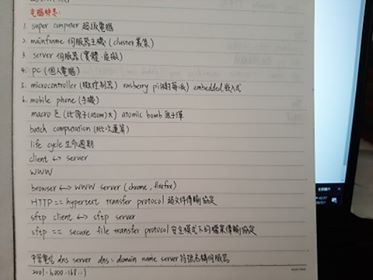 電腦種類:
1. super computer 超級電腦
2. mainframe 伺服器主機 (cluster 叢集)
3. server 伺服器 (實體、虛擬)
4. pc (個人電腦)
5. microcontroller (微控制器) rasberry pi (樹莓派) embedded 嵌入式
6. mobile phone (手機)
macro 巨 (比原子(atom)大) atomic bomb 原子彈
batch computation (批次運算)
life cycle 生命週期
client ↔ server
WWW
browser ↔ WWW server (chrome, firefox)
HTTP == hypertext transfer protocol 超文件傳輸協定
sftp client ↔ sftp server
sftp == secure file transfer protocol 安全模式下的檔案傳輸協定
中華電信 dns server dns: domain name server